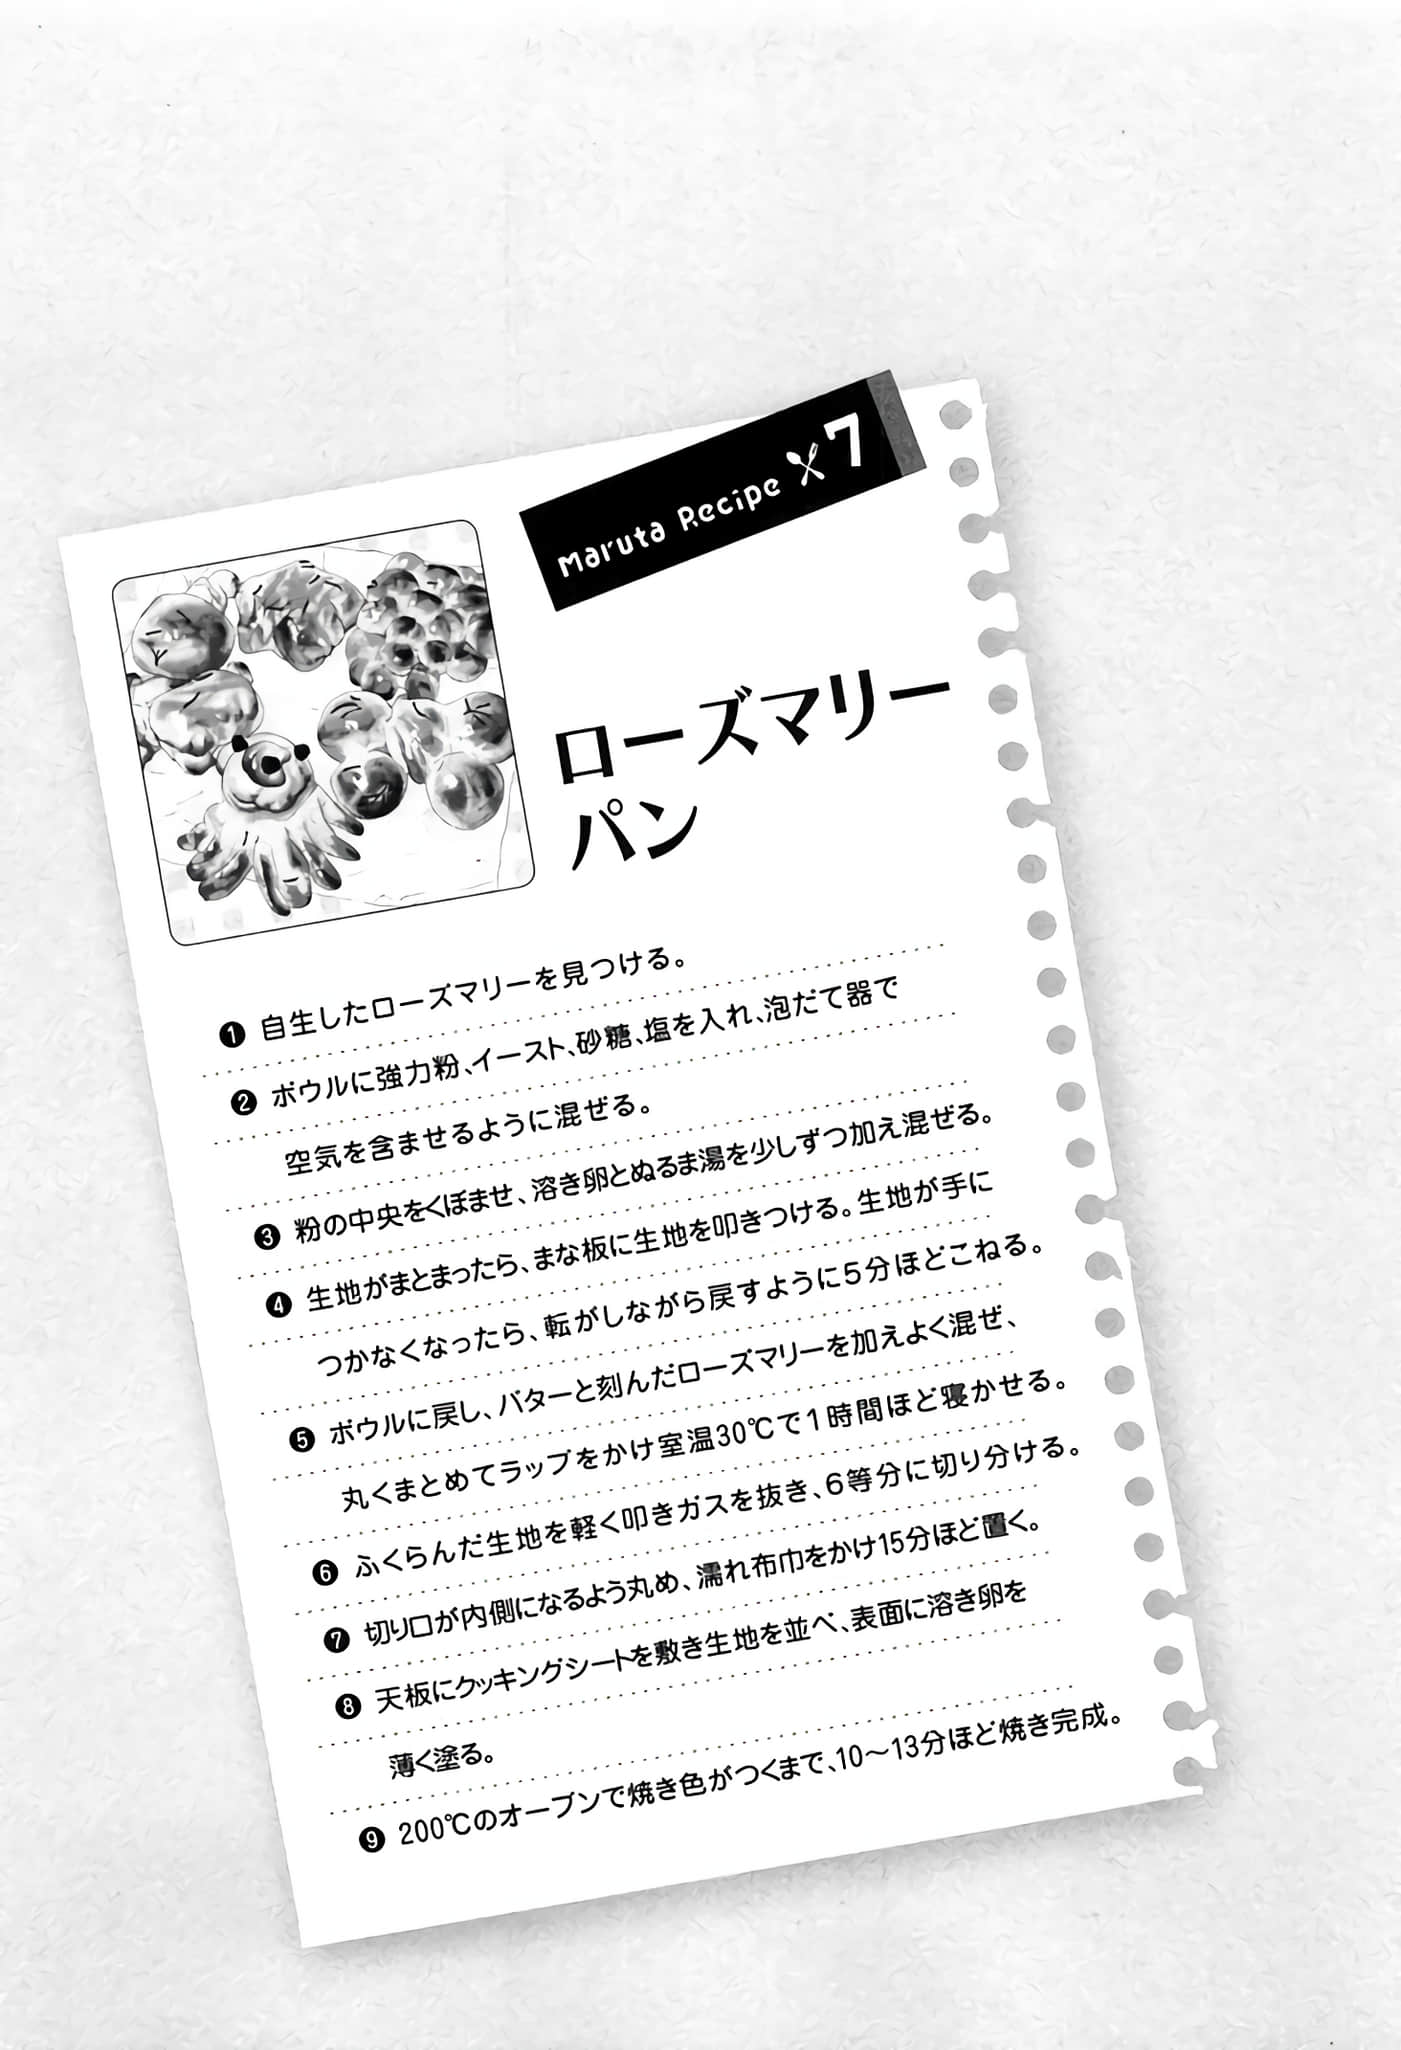 Maruta Recipe 7
ローズマリー
パン
❶ 自生したローズマリーを見つける。
❷ ボウルに強力粉、イースト、砂糖、塩を入れ、泡だて器で
空気を含ませるように混ぜる。
❸ 粉の中央をくぼませ、溶き卵とぬるま湯を少しずつ加え混ぜる。
❹ 生地がまとまったら、まな板に生地を叩きつける。生地が手に
つかなくなったら、転がしながら戻すように5分ほどこねる。
❺ ボウルに戻し、バターと刻んだローズマリーを加えよく混ぜ、
丸くまとめてラップをかけ室温30℃で1時間ほど寝かせる。
❻ ふくらんだ生地を軽く叩きガスを抜き、6等分に切り分ける。
❼ 切り口が内側になるよう丸め、濡れ布巾をかけ15分ほど置く。
❽ 天板にクッキングシートを敷き生地を並べ、表面に溶き卵を
薄く塗る。
❾ 200℃のオーブンで焼き色がつくまで、10〜13分ほど焼き完成。